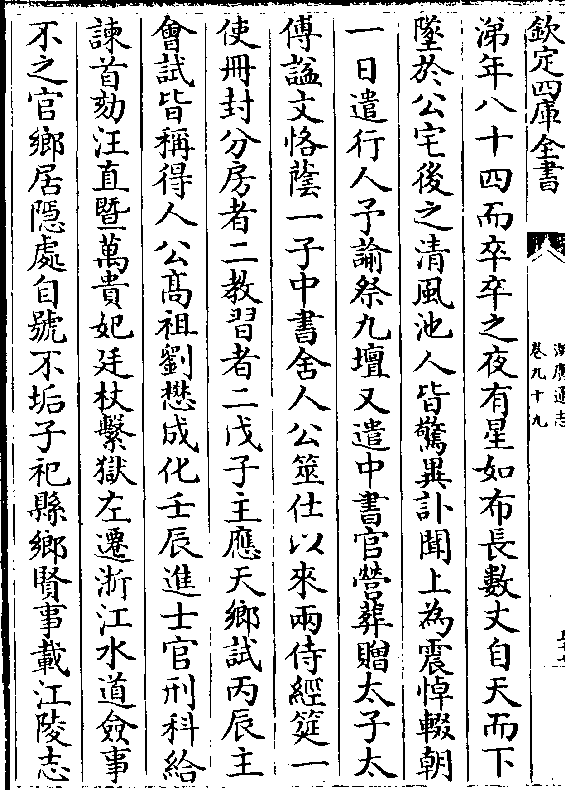 欽定四庫全書
湖廣通志
卷九十九
涕年八十四而卒卒之夜有星如布長數丈自天而下
墜於公宅後之清風池人皆驚異訃聞上為震悼輟朝
一日遣行人予諭祭九壇又遣中書官營葬贈太子太
傅諡文恪蔭一子中書舍人公筮仕以來兩侍經筵一
使冊封分房者二教習者二戊子主應天鄉試丙辰主
會試皆稱得人公髙祖劉懋成化壬辰進士官刑科給
諫首劾汪直暨萬貴妃廷杖繫獄左遷浙江水道僉事
不之官鄉居隱處自號不垢子祀縣鄉賢事載江陵志